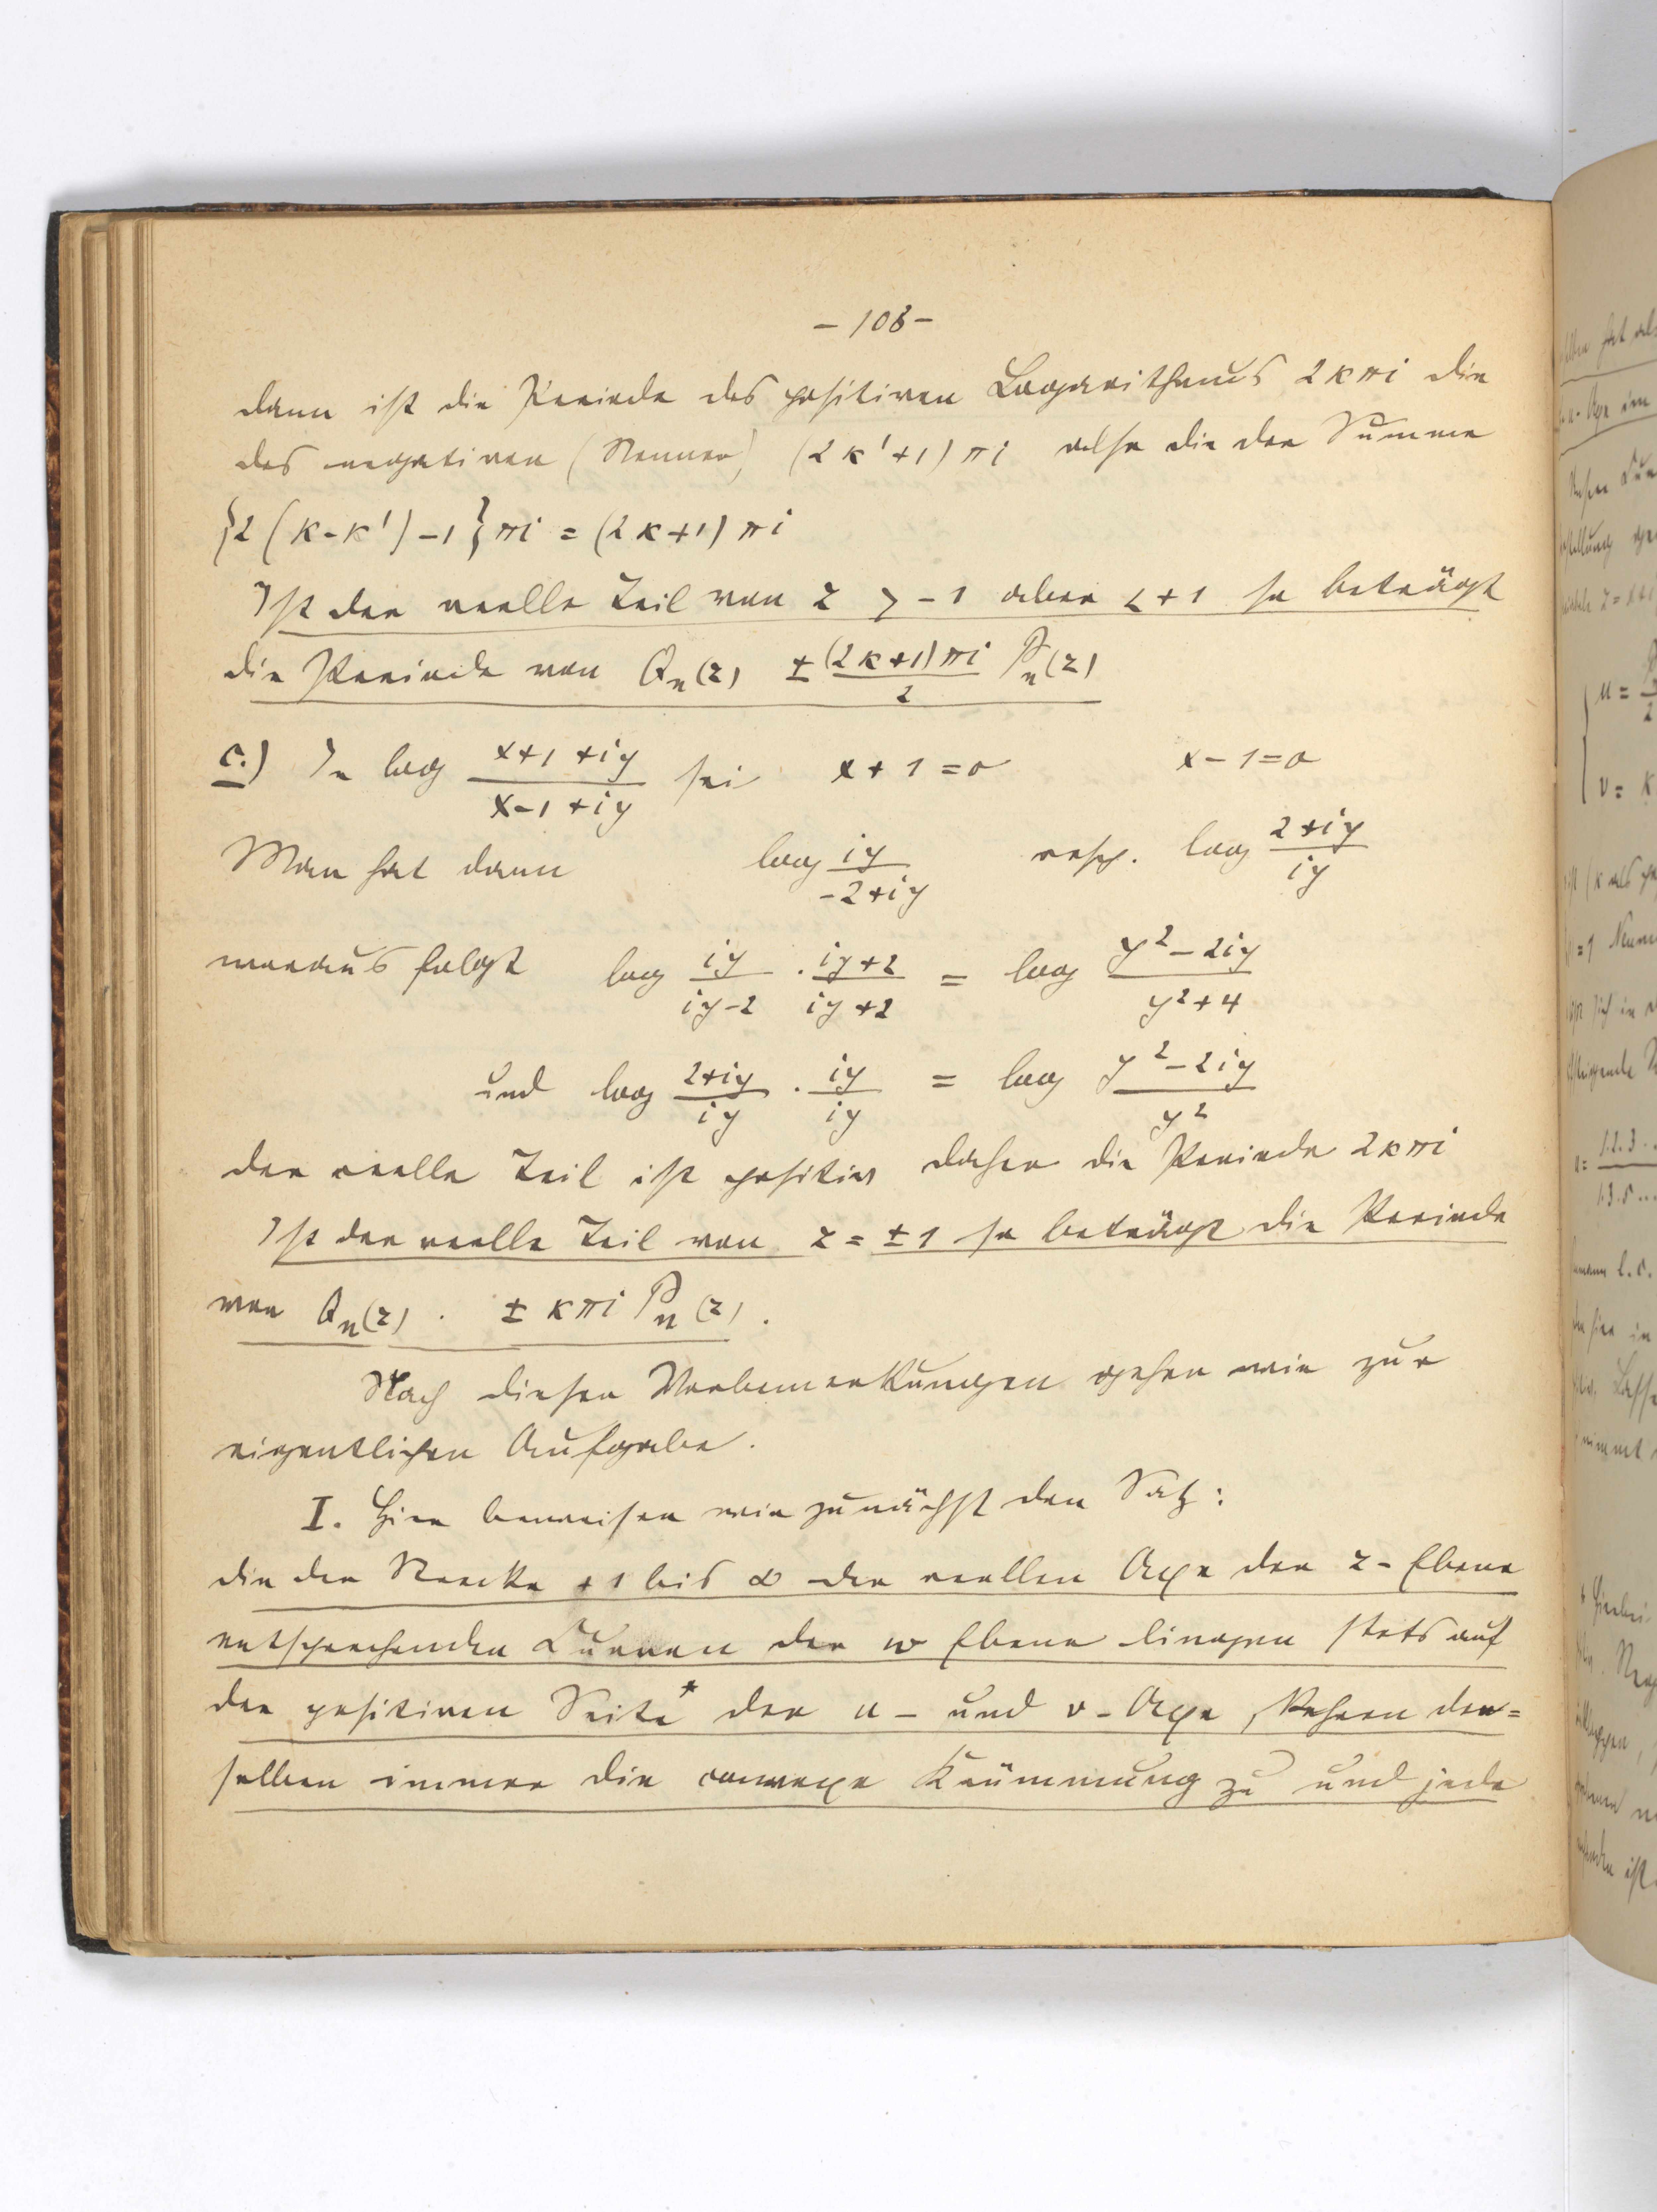 – 108 –
dann ist die Periode des positiven Logarithmus 2kπi die
des negativen (Nenner) (2k'+1)πi also die der Summe
{2(k-k')-1}πi = (2k+1)πi
Ist der reelle Teil von z > -1 aber < +1 so beträgt
die Periode von Qn(z) ± (2k+1)πi/2 Pn(z)
c.) In log (x+1+iy)/(x-1+iy) sei x+1=0 x-1=0
Man hat dann log iy/(-2+iy) resp. log (2+iy)/iy
woraus folgt log iy/(iy-2) · (iy+2)/(iy+2) = log (y²-2iy)/(y²+4)
und log (2+iy)/iy · iy/iy = log (y²-2iy)/y²
der reelle Teil ist positiv daher die Periode 2kπi
Ist der reelle Teil von z = ±1 so beträgt die Periode
von Qn(z) . ± kπi Pn(z).
Nach diesen Vorbemerkungen gehen wir zur
eigentlichen Aufgabe.
I. Hier beweisen wir zunächst den Satz:
die der Strecke +1 bis ∞ der reellen Axe der z-Ebene
entsprechenden Curven der w Ebene liegen stets auf
der positiven Seite* der u- und v-Axe, kehren den=
selben immer die convexe Krümmung zu und jede